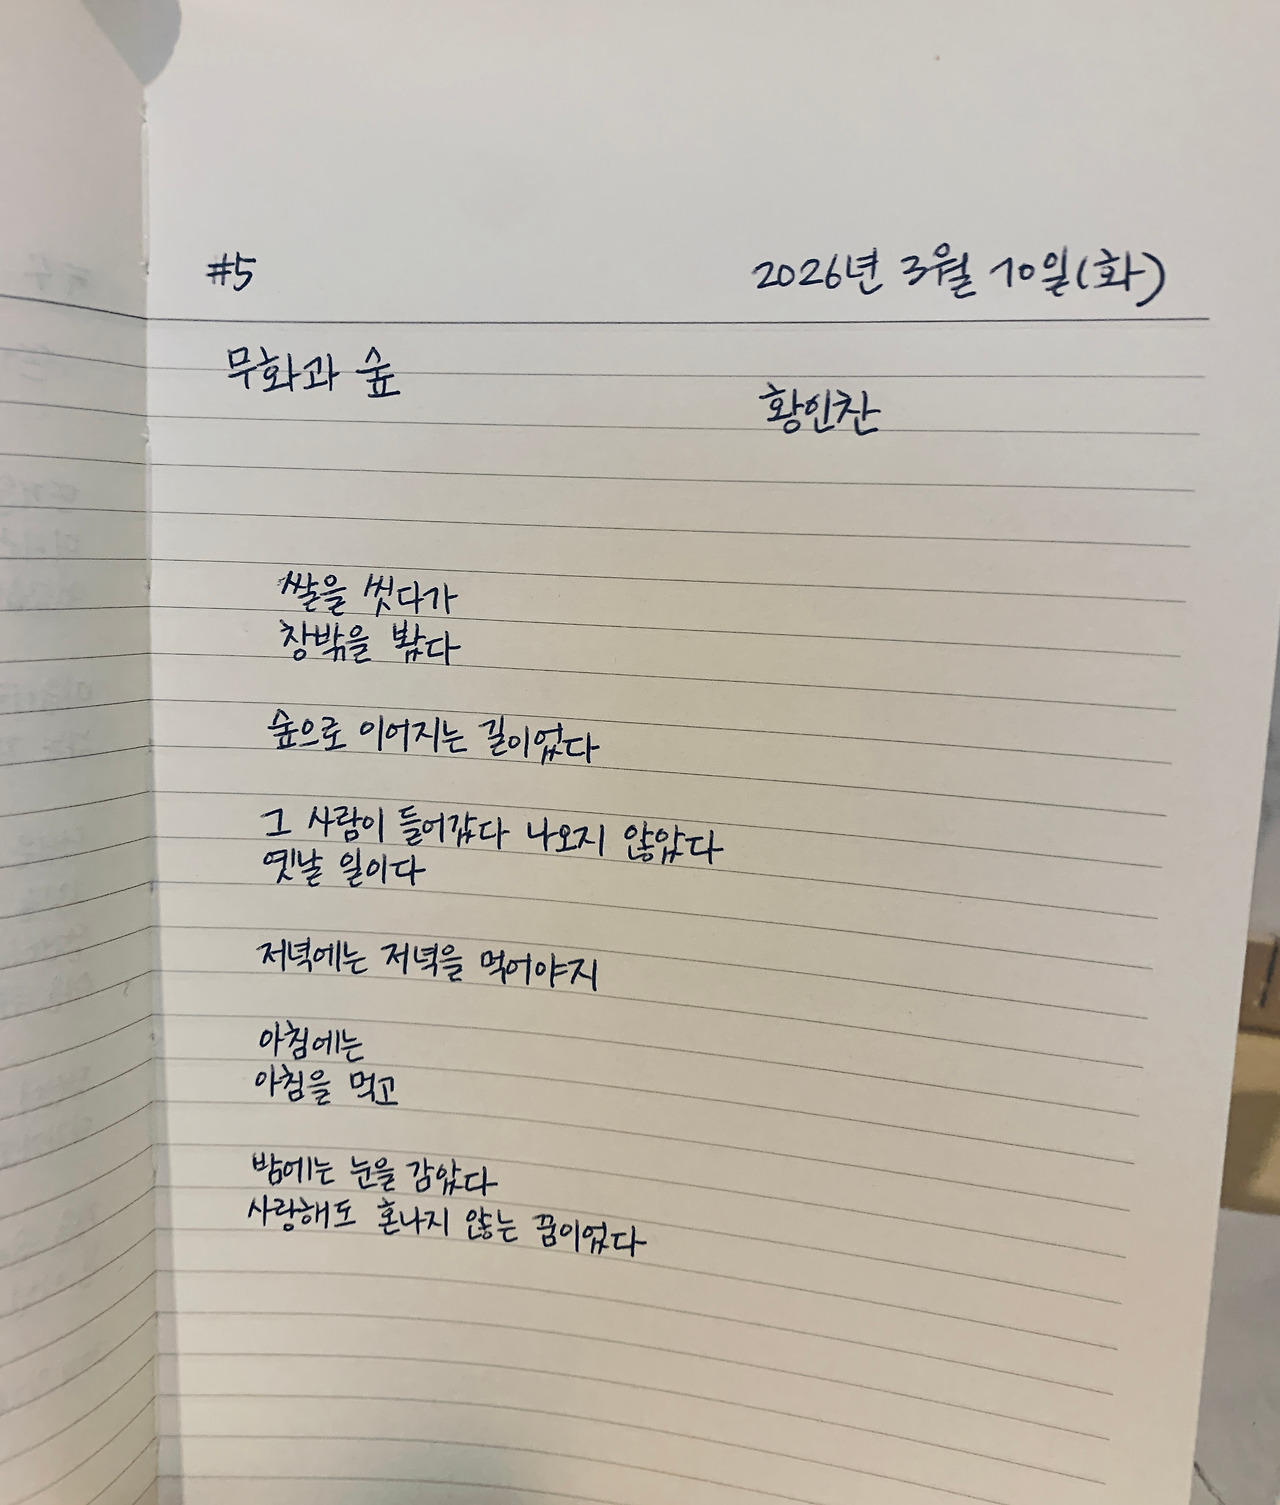 #5 2026년 3월 10일(화)
무화과 숲
황인찬
쌀을 씻다가
창밖을 봤다
숲으로 이어지는 길이었다
그 사람이 들어갔다 나오지 않았다
옛날 일이다
저녁에는 저녁을 먹어야지
아침에는
아침을 먹고
밤에는 눈을 감았다
사랑해도 혼나지 않는 꿈이었다